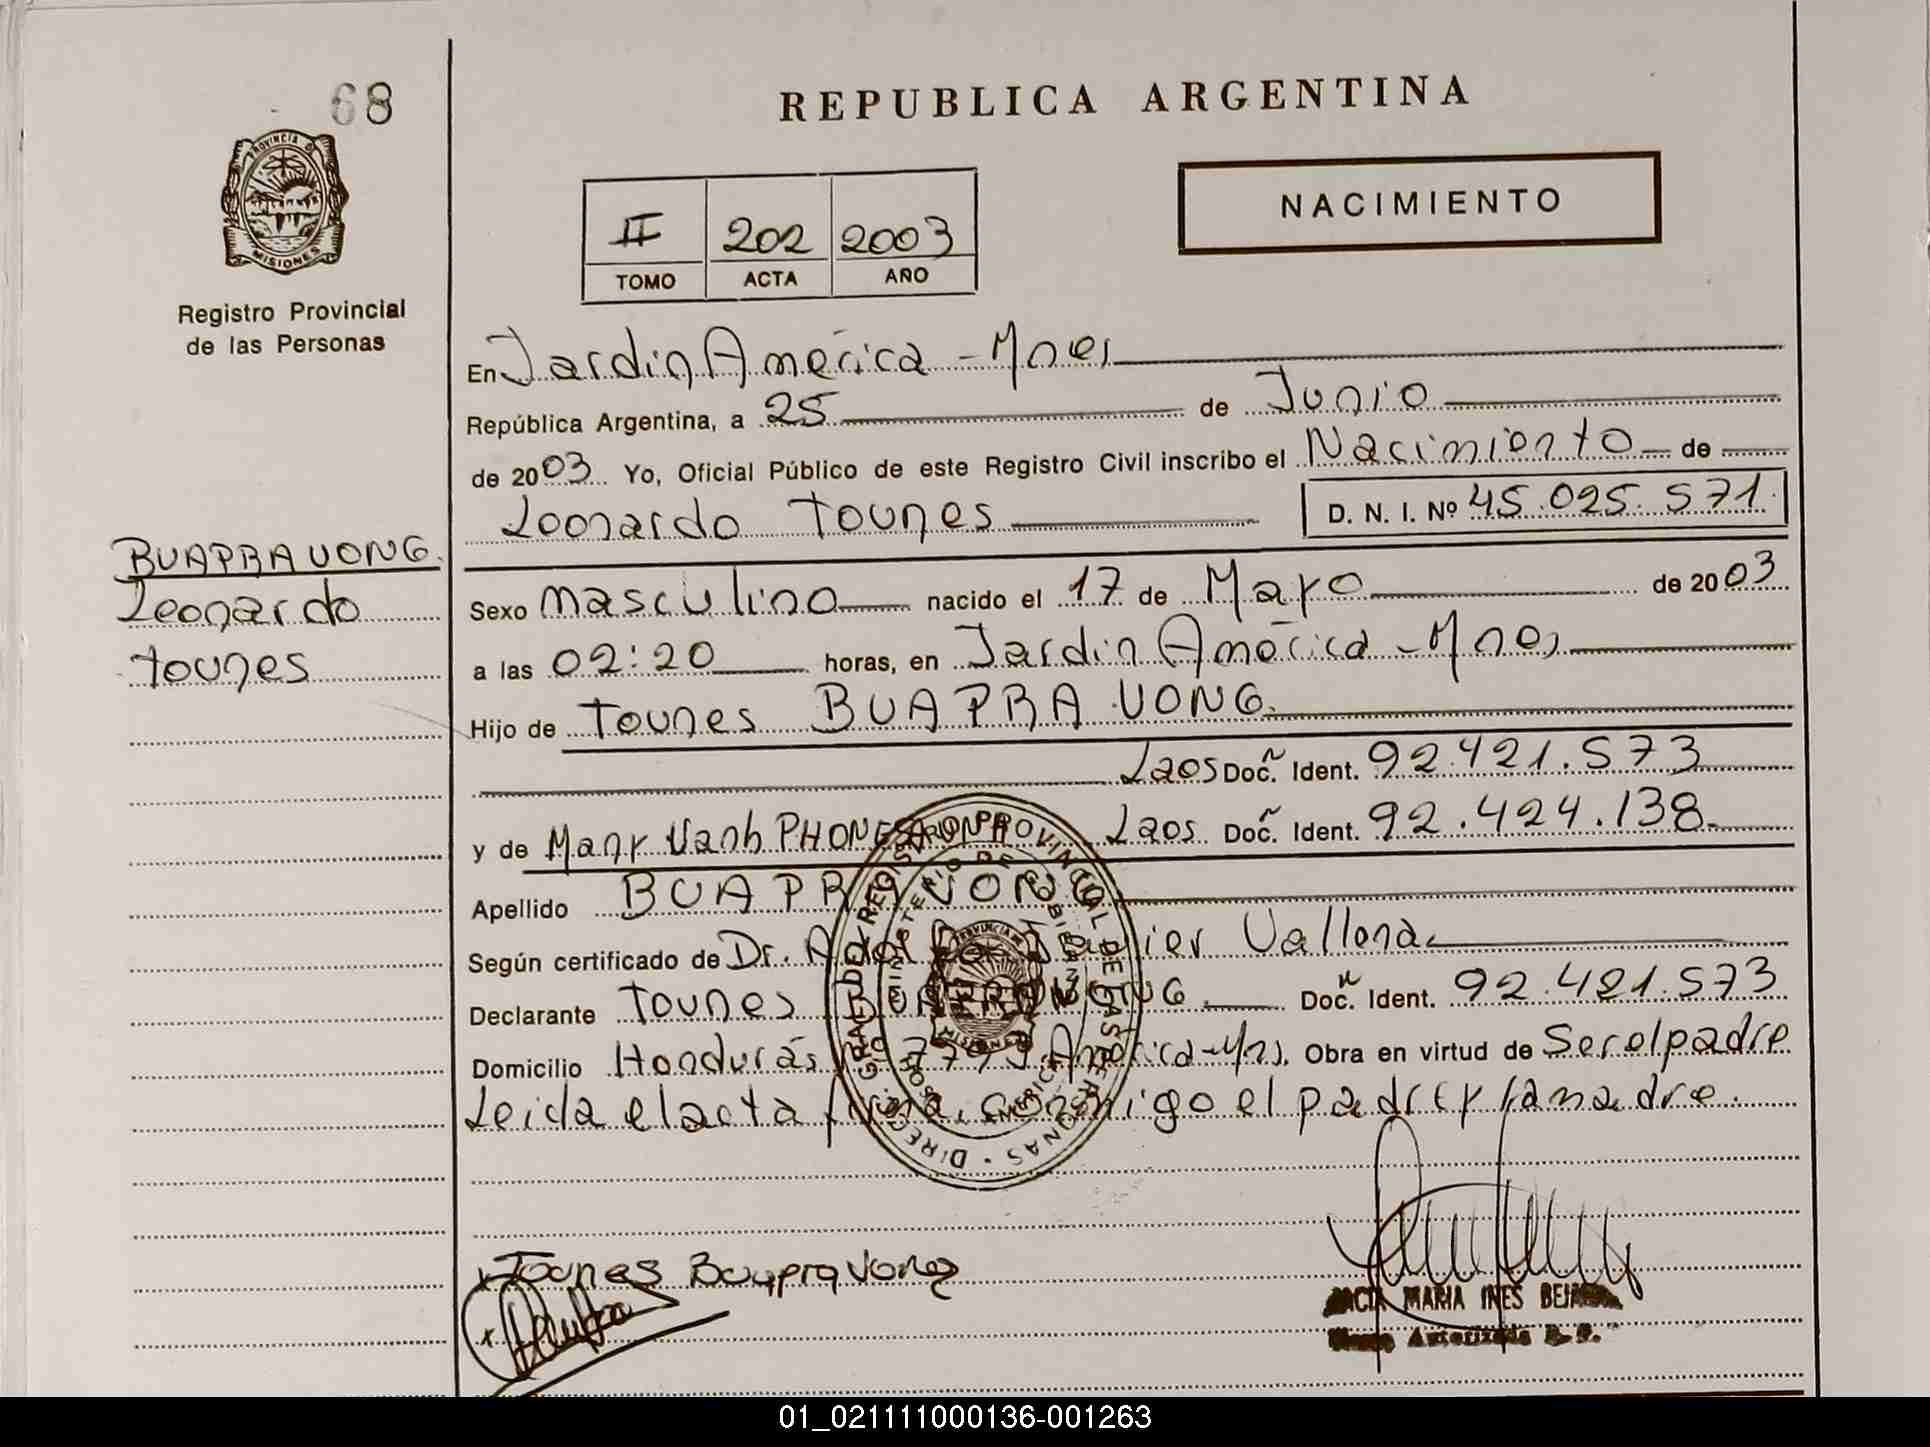 68
PROVINCIA DE
MISIONES
Registro Provincial
de las Personas
BUAPRAVONG.
Leonardo
tounes
REPUBLICA ARGENTINA
II 202 2003
TOMO ACTA AÑO
NACIMIENTO
En Jardin América - Mnes
República Argentina, a 25 de Junio
de 2003 Yo, Oficial Público de este Registro Civil inscribo el Nacimiento de
Leonardo Tounes D. N. I. Nº 45.025.571.
Sexo masculino nacido el 17 de Mayo de 2003
a las 02:20 horas, en Jardin América - Mnes
Hijo de Tounes BUAPRAVONG.
Laos Docñ. Ident. 92.421.573
y de Many Vanh PHONESAVANH Laos. Docñ. Ident. 92.424.138.
Apellido BUAPRAVONG
Según certificado de Dr. Adolfo Javier Vallena
Declarante Tounes BUAPRAVONG. Docñ. Ident. 92.421.573
Domicilio Honduras 779 J. América-Mns. Obra en virtud de Ser el padre
Leida el acta firma conmigo el padre y la madre.
DIRECC. GRAL. DE REGISTRO PROVINCIAL DE LAS PERSONAS
MINISTERIO DE GOBIERNO
Tounes BuapraVong
MARIA INES